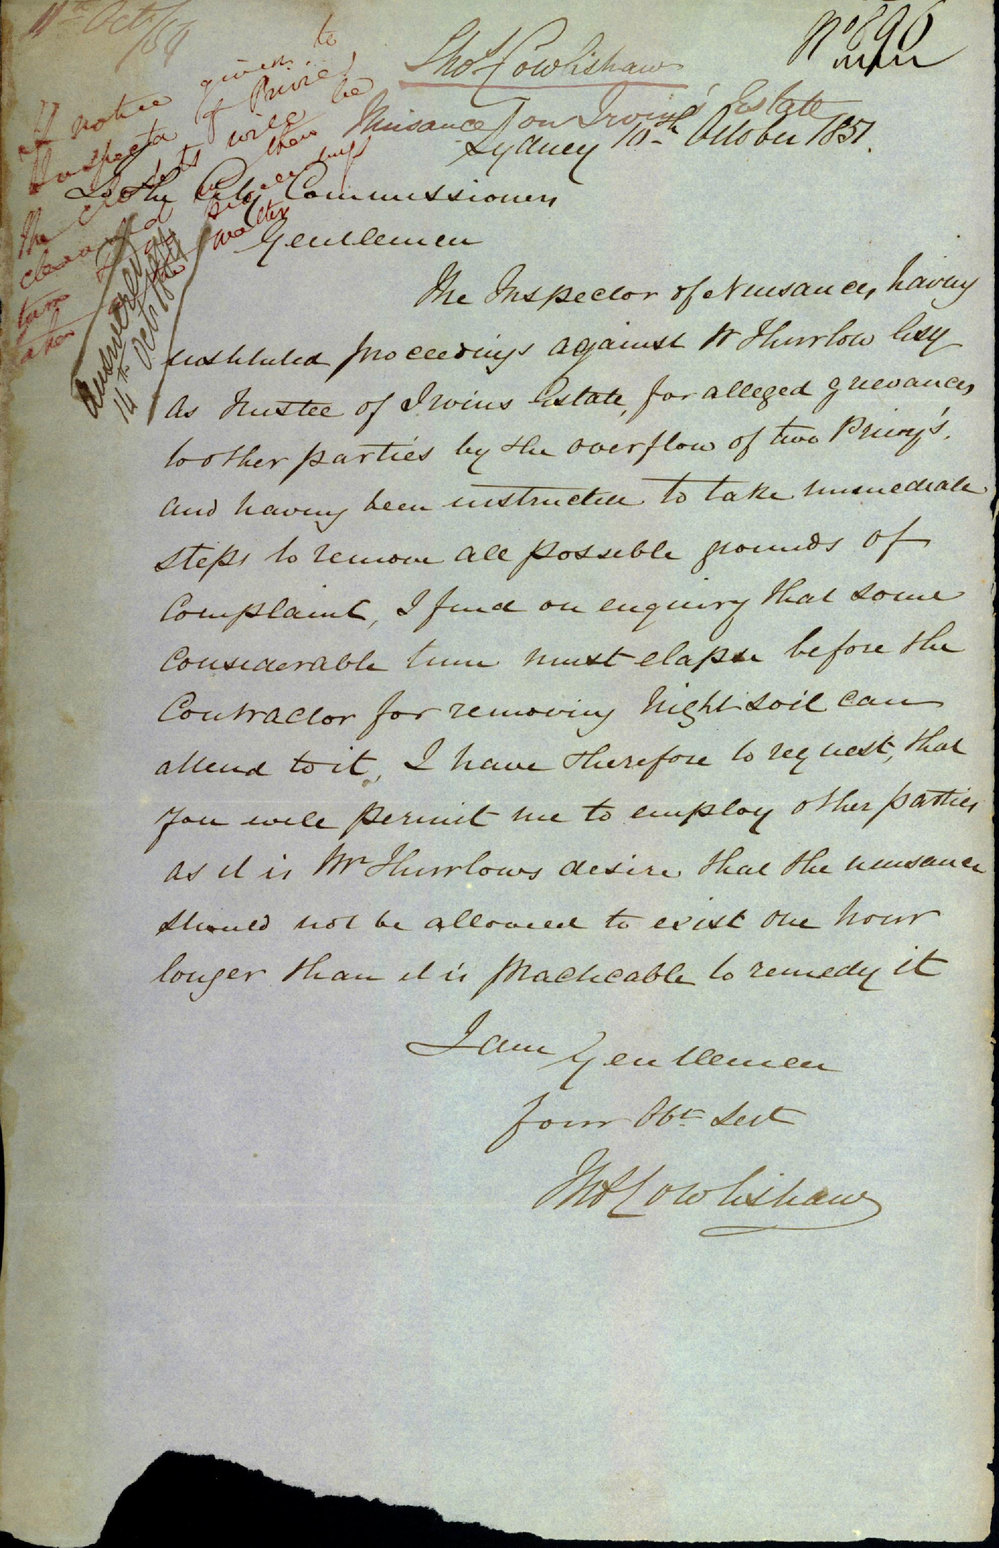 11th Oct /54
No 896
Thos Cowlishaw
Nuisance on Irvins Estate
If notice given to
Inspector of Privies
the closets will be
cleaned in their
turn
after the matter
Answered
14th Oct 1854
Sydney 10th October 1854.
To the City Commissioners
Gentlemen
The Inspector of Nuisances, having
instituted proceedings against W Thurlow Esq
As Trustee of Irvins Estate, for alleged grievances
to other parties by the overflow of two Privy's.
and having been instructed to take immediate
steps to remove all possible grounds of
Complaint, I find on enquiry that some
Considerable time must elapse before the
Contractor for removing Night soil can
attend to it, I have therefore to request, that
you will permit me to employ other parties
as it is Mr Thurrlows desire that the nuisance
should not be allowed to exist one hour
longer than it is practicable to remedy it
I am Gentlemen
Your Obt Sert
Thos Cowlishaw